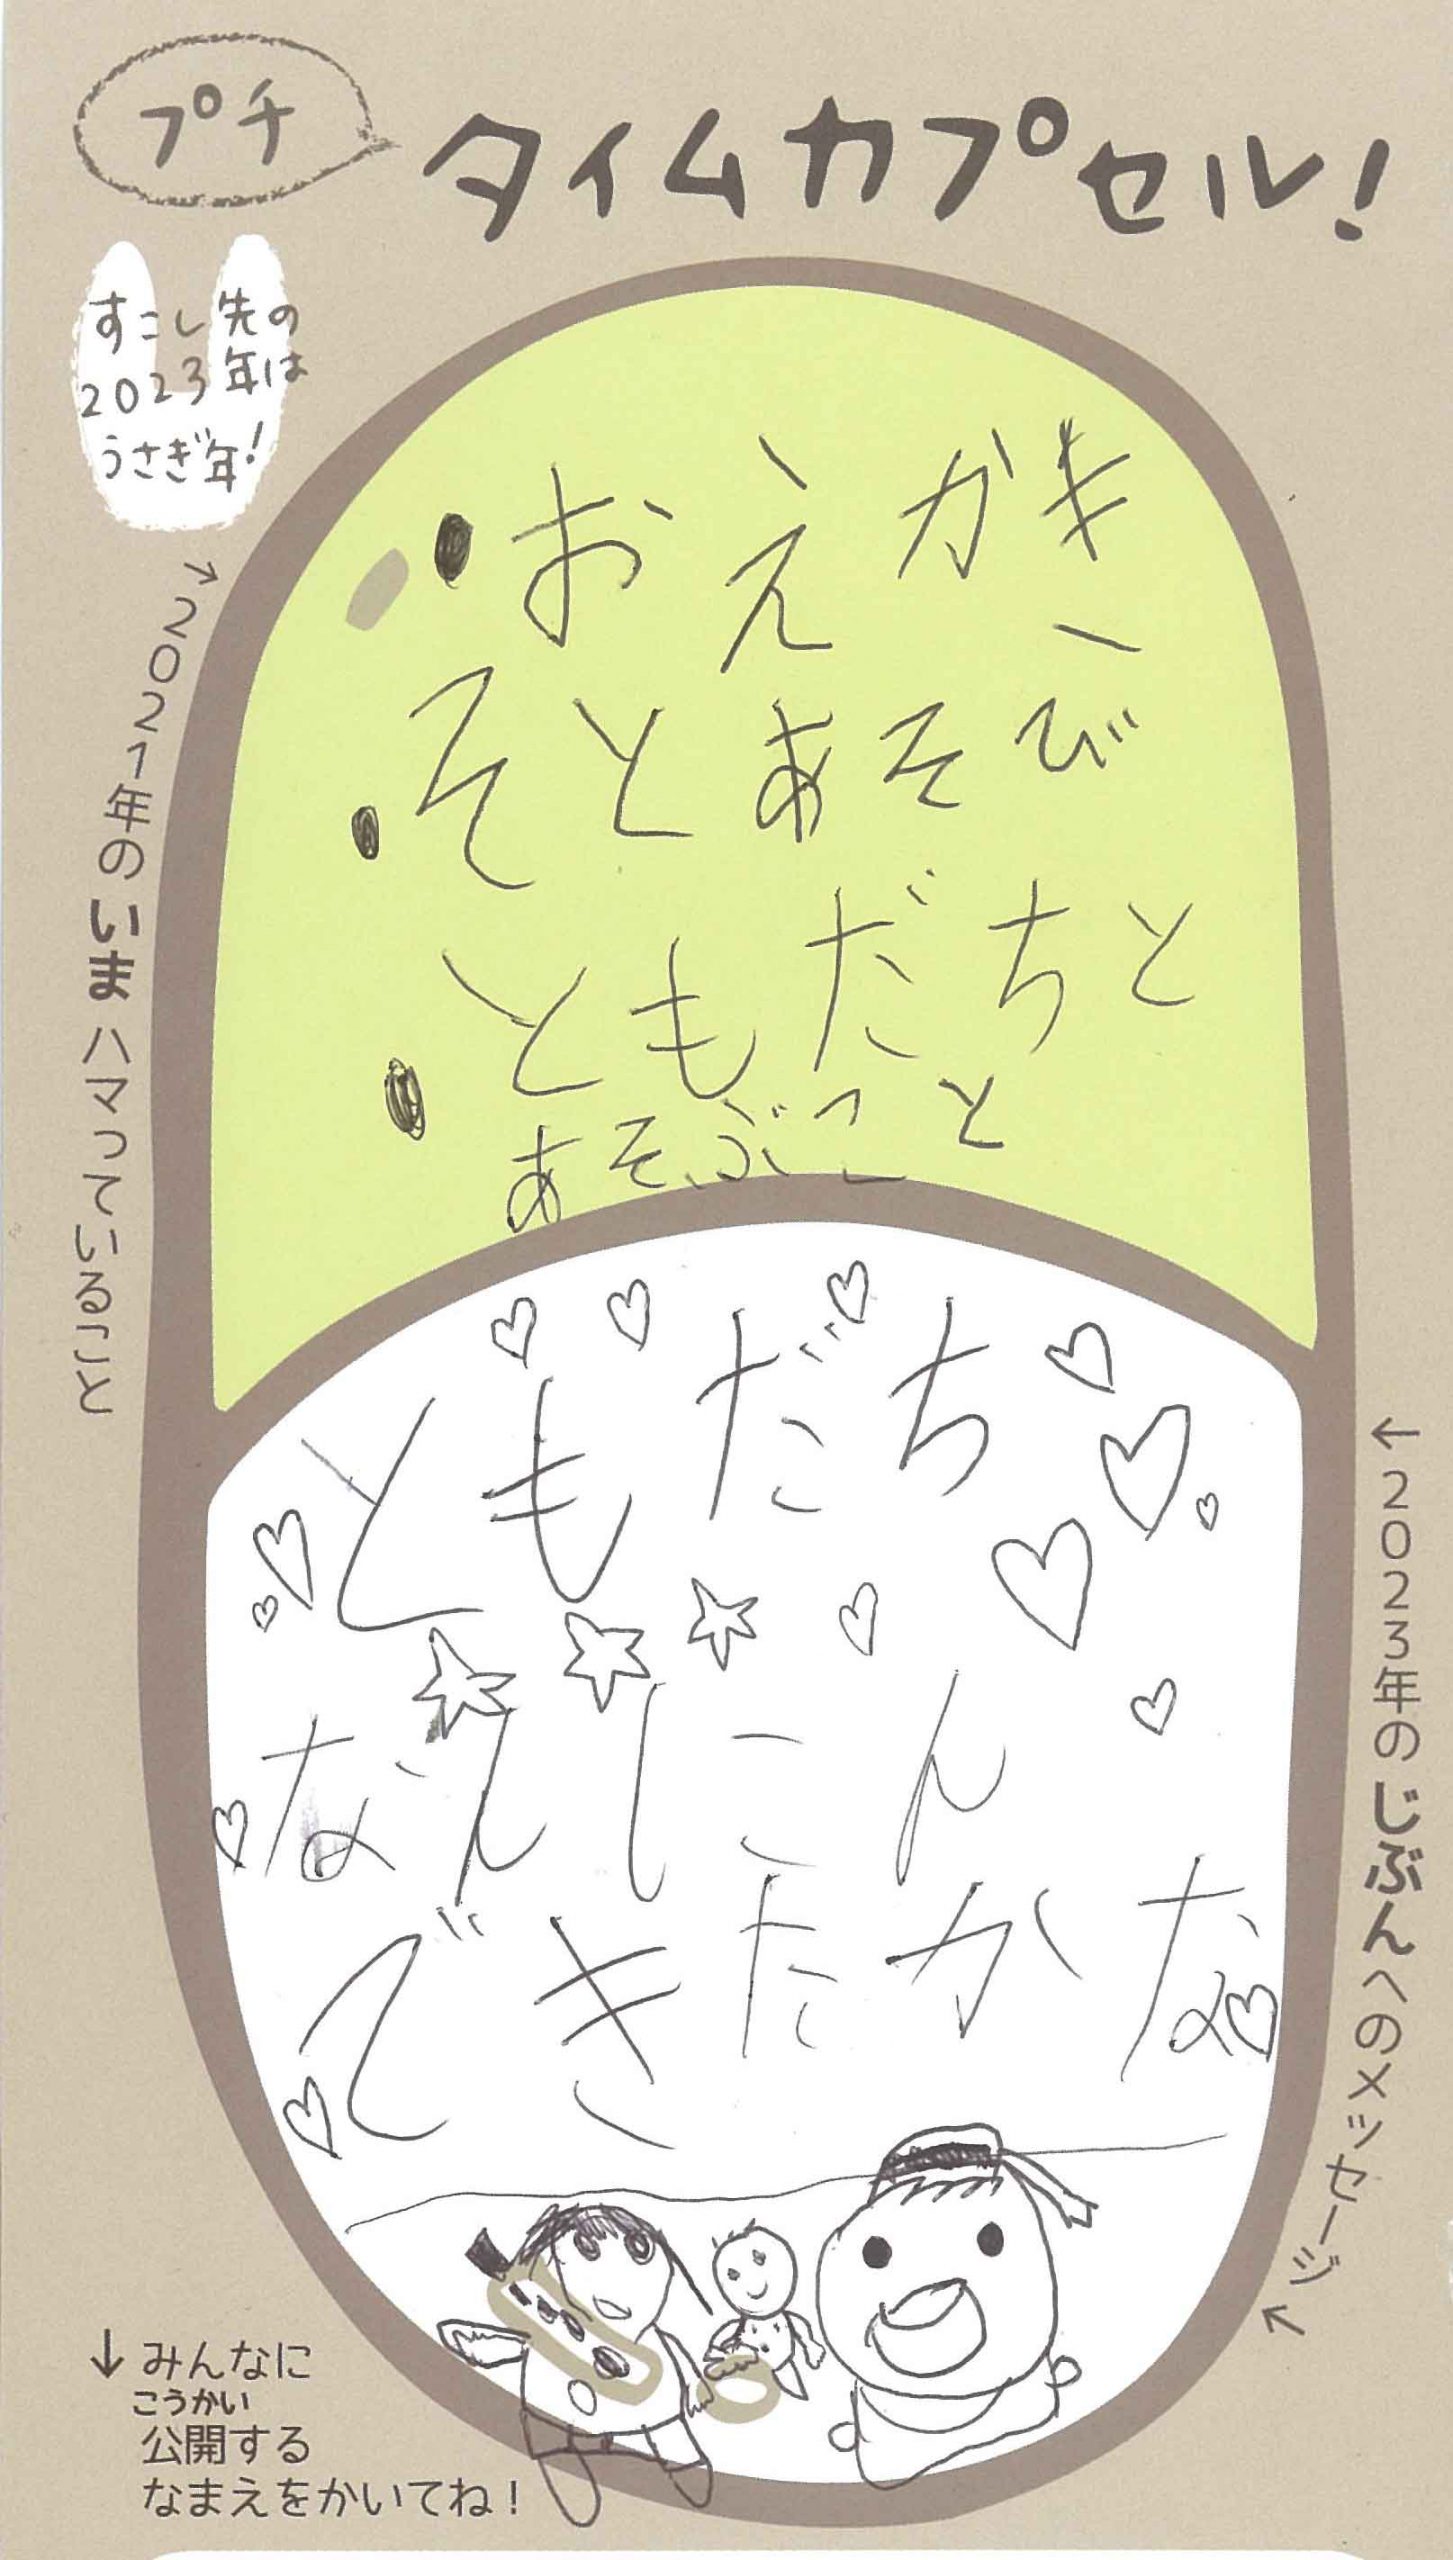 プチ
タイムカプセル!
すこし先の
2023年は
うさぎ年!
→2021年のいまハマっていること
おえかき
そとあそび
ともだちと
あそぶこと
←2023年のじぶんへのメッセージ
ともだち
なんにん
できたかな
↓みんなに
こうかい
公開する
なまえをかいてね!